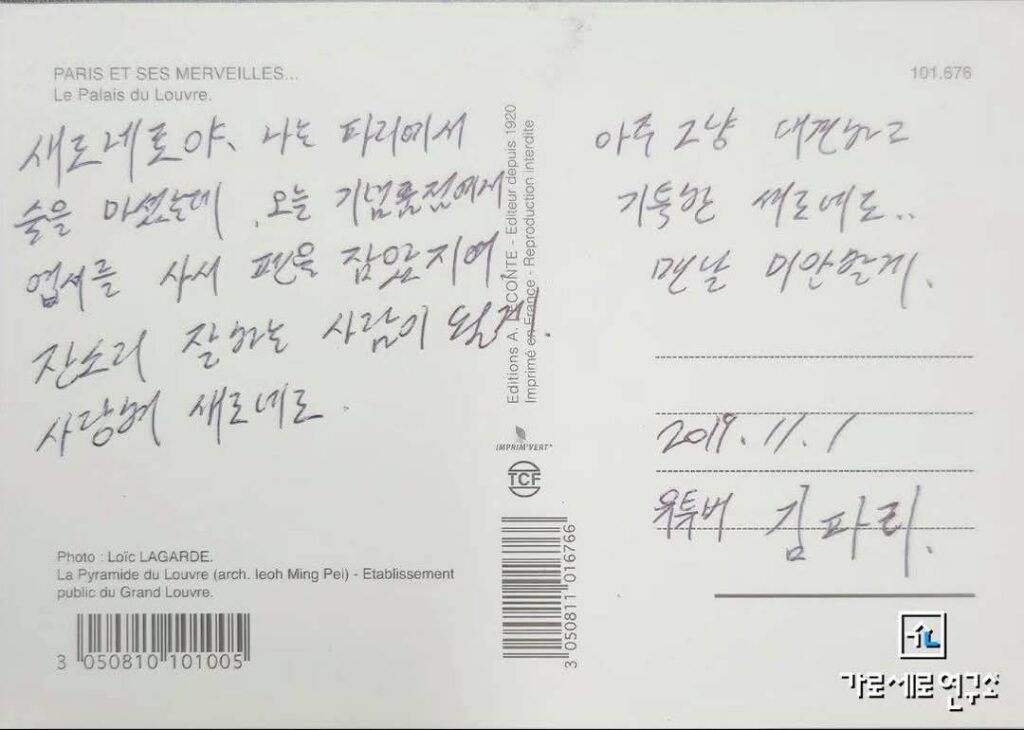 PARIS ET SES MERVEILLES...
Le Palais du Louvre.
101.676
새로네로야, 나는 파리에서
술을 마셨는데, 오늘 기념품점에서
엽서를 사서 펜을 잡았지여.
잔소리 잘하는 사람이 될게.
사랑혀 새로네로.
아주 그냥 대견하고
기특한 새로네로..
맨날 미안할게.
2019.11.1
유투버 김파리.
Editions A. LECONTE - Editeur depuis 1920
Imprimé en France - Reproduction interdite
IMPRIM'VERT
TCF
3 050811 016766
Photo : Loïc LAGARDE.
La Pyramide du Louvre (arch. Ieoh Ming Pei) - Etablissement
public du Grand Louvre.
3 050810 101005
가로세로연구소